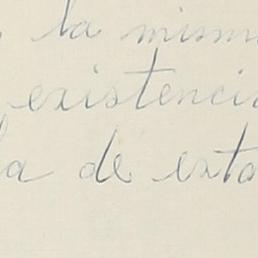 la mism
existenci
la de exta